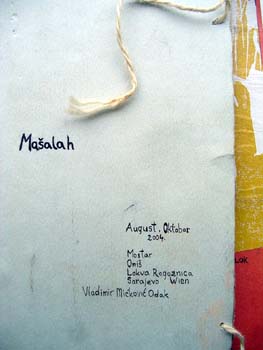 Mašalah
August. Oktobar
2004.
Mostar
Omiš
Lokva Rogoznica
Sarajevo Wien
Vladimir Mićković Odak
LOK